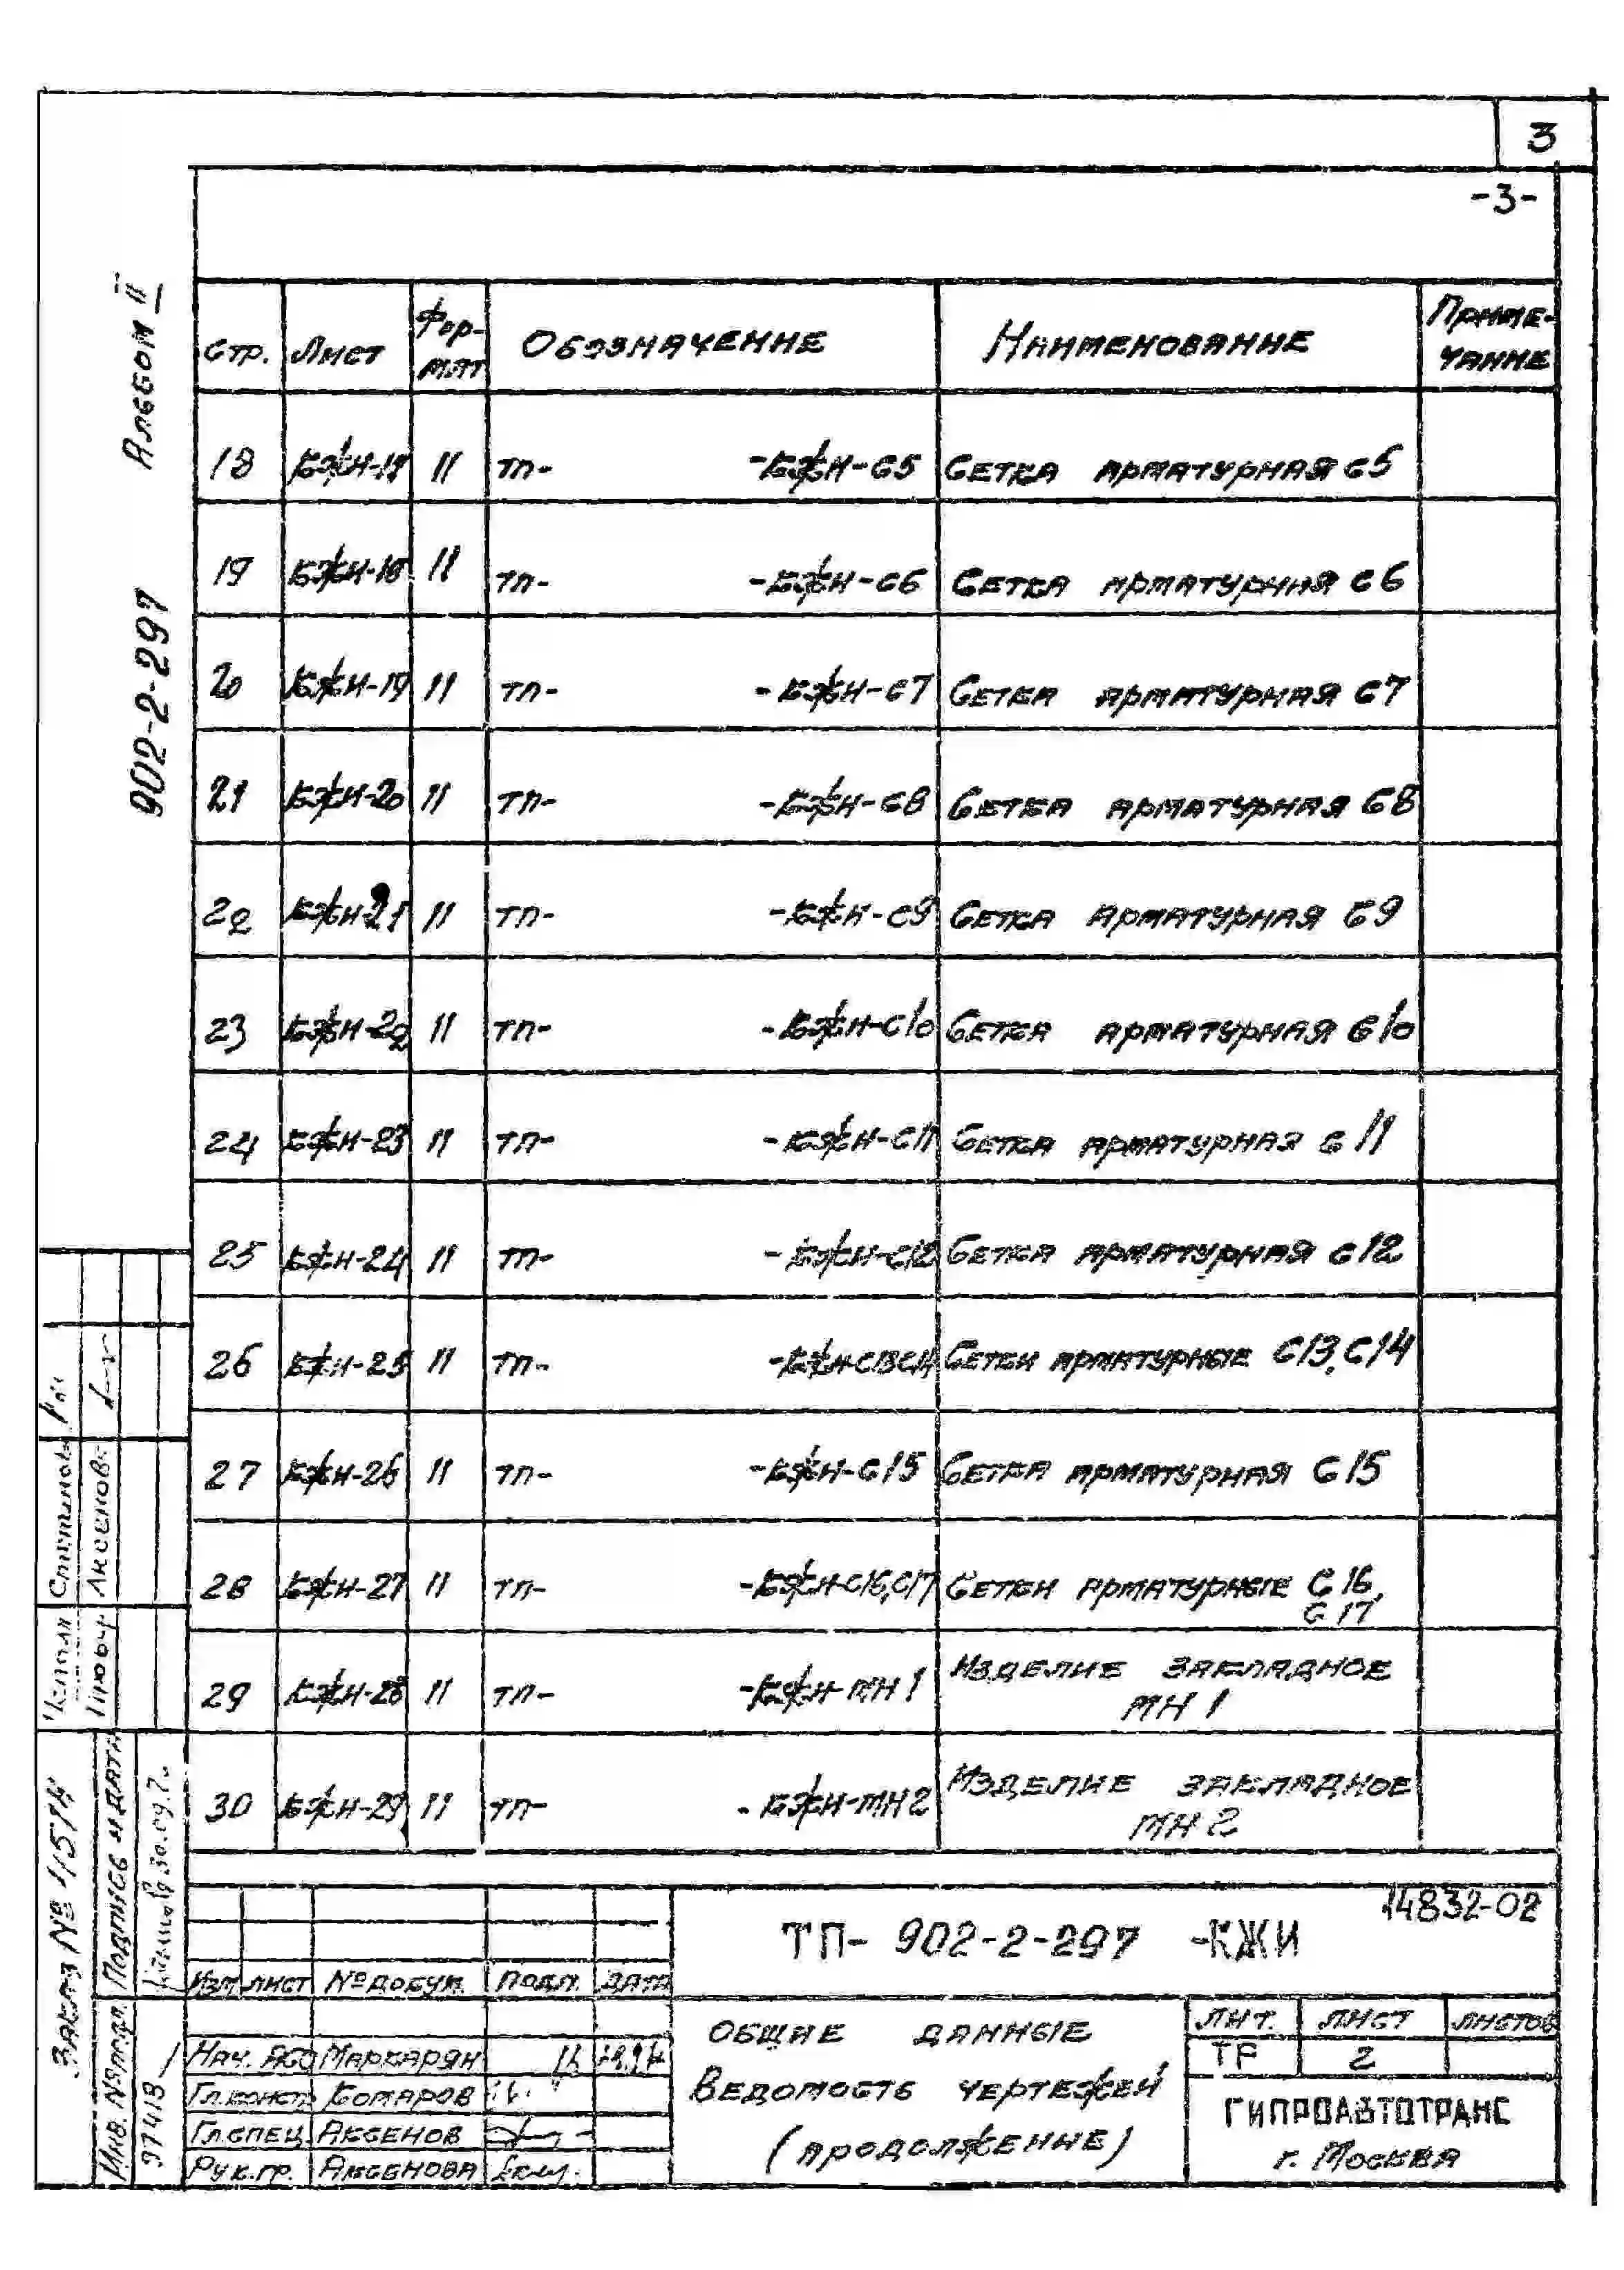 3
-3-
Альбом II
902-2-297
Стр. Лист Фор-мат Обозначение Наименование Приме-чание
18 КЖИ-17 11 ТП- -КЖИ-С5 Сетка арматурная С5
19 КЖИ-18 11 ТП- -КЖИ-С6 Сетка арматурная С6
20 КЖИ-19 11 ТП- -КЖИ-С7 Сетка арматурная С7
21 КЖИ-20 11 ТП- -КЖИ-С8 Сетка арматурная С8
22 КЖИ-21 11 ТП- -КЖИ-С9 Сетка арматурная С9
23 КЖИ-22 11 ТП- -КЖИ-С10 Сетка арматурная С10
24 КЖИ-23 11 ТП- -КЖИ-С11 Сетка арматурная С11
25 КЖИ-24 11 ТП- -КЖИ-С12 Сетка арматурная С12
26 КЖИ-25 11 ТП- -КЖИ-С13,С14 Сетки арматурные С13, С14
27 КЖИ-26 11 ТП- -КЖИ-С15 Сетка арматурная С15
28 КЖИ-27 11 ТП- -КЖИ-С16,С17 Сетки арматурные С16,
С17
29 КЖИ-28 11 ТП- -КЖИ-МН1 Изделие закладное
МН1
30 КЖИ-29 11 ТП- -КЖИ-МН2 Изделие закладное
МН2
14832-02
ТП- 902-2-297 -КЖИ
Изм лист № докум. Подп. Дата
Нач. АСО Маркарян
Гл. констр Комаров
Гл. спец Аксенов
Рук. гр. Аксенова
Общие данные
Ведомость чертежей
(продолжение)
Лит. Лист Листов
ТР 2
ГИПРОАВТОТРАНС
г. Москва
Аксенова
Заказ №
Подпись и дата
Инв. № подл.
97418